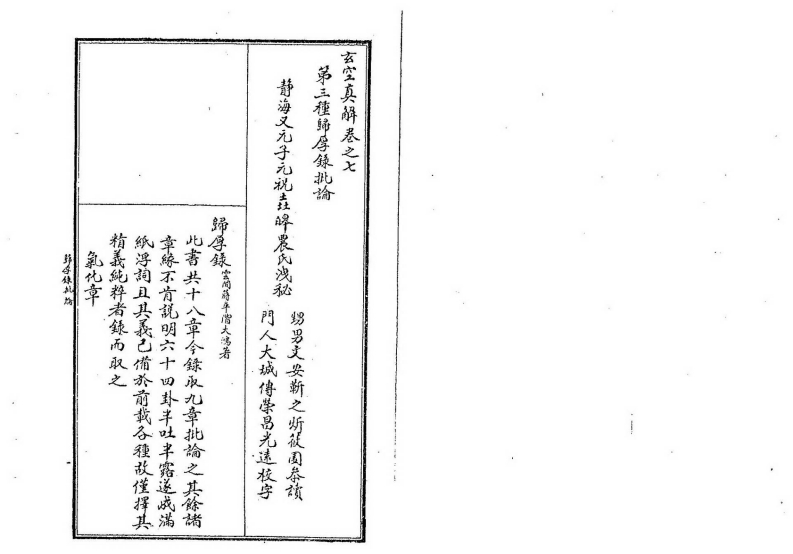 玄空真解卷之七
第三種歸厚錄批論
靜海又元子元祝垚皥農氏洩秘
甥男文安靳之炘莜園叅讀
門人大城傅榮昌光遠校字
歸厚錄 雲間蔣平階大鴻著
此書共十八章今錄取九章批論之其餘諸
章緣不肯説明六十四卦半吐半露遂成滿
紙浮詞且其義已備於前載各種故僅擇其
精義純粹者錄而取之
氣化章
歸厚錄批論